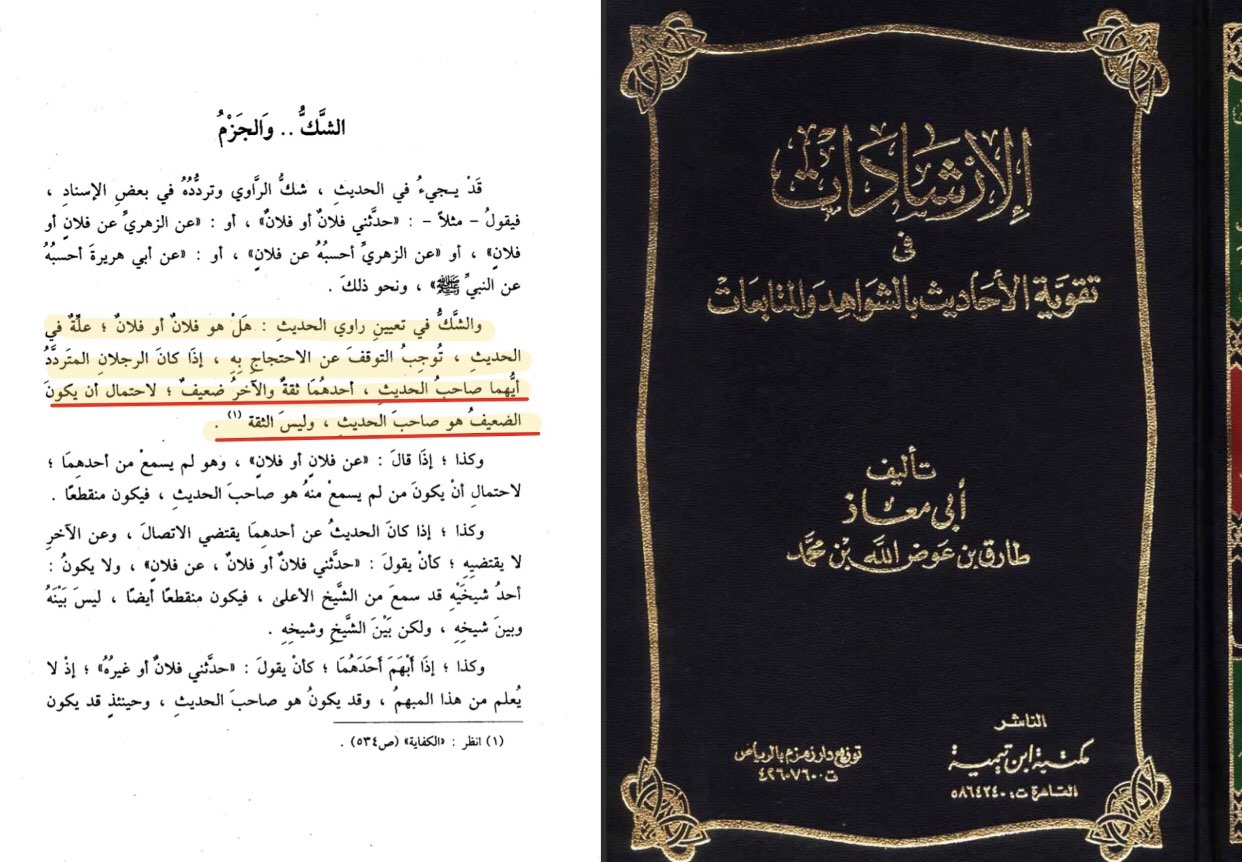 الشَّكُّ .. وَالجَزْمُ
قَدْ يـجيءُ في الحديثِ ، شكُّ الرَّاوي وتردُّدُهُ في بعضِ الإسنادِ ،
فيقولُ – مثلاً – : «حدَّثني فلانٌ أو فلانٌ» ، أو : «عن الزهريِّ عن فلانٍ أو
فلانٍ» ، أو «عن الزهريِّ أحسبُهُ عن فلانٍ» ، أو : «عن أبي هريرةَ أحسبُهُ
عن النبيِّ ﷺ» ، ونحو ذلكَ .
والشَّكُّ في تعيينِ راوي الحديثِ : هَلْ هو فلانٌ أو فلانٌ ؛ علَّةٌ في
الحديثِ ، تُوجِبُ التوقفَ عن الاحتجاجِ بِهِ ، إذَا كانَ الرجلانِ المتَردَّدُ
أيُّهما صاحبُ الحديثِ ، أحدهُمَا ثقةٌ والآخرُ ضعيفٌ ؛ لاحتمال أن يكونَ
الضعيفُ هو صاحبَ الحديثِ ، وليسَ الثقة (١) .
وكذا ؛ إذَا قالَ : «عن فلانٍ أو فلانٍ» ، وهو لم يسمعْ من أحدهِمَا ؛
لاحتمالِ أنْ يكونَ من لم يسمعْ منهُ هو صاحبَ الحديثِ ، فيكون منقطعًا .
وكذا ؛ إذا كانَ الحديثُ عن أحدهِمَا يقتضي الاتصالَ ، وعن الآخرِ
لا يقتضيهِ ؛ كأنْ يقولَ : «حدَّثني فلانٌ أو فلانٌ ، عن فلانٍ» ، ولا يكونُ :
أحدُ شيخَيْهِ قد سمعَ من الشَّيخِ الأعلىٰ ، فيكون منقطعًا أيضًا ، ليسَ بَيْنَهُ
وبينَ شيخِهِ ، ولكن بَيْنَ الشَّيخِ وشيخِهِ .
وكذا ؛ إذَا أَبْهَمَ أَحَدَهُمَا ؛ كأنْ يقولَ : «حدَّثني فلانٌ أو غيرُهُ» ؛ إذْ لا
يُعلم من هذا المبهمُ ، وقد يكونُ هو صاحبَ الحديثِ ، وحينئذٍ قد يكون
(١) انظر : «الكفاية» (ص٥٣٤) .
الإرْشَادَات
في
تقوية الأحَاديث بالشَّوَاهِد وَالمتَابعَات
تأليف
أبي معَاذ
طارق بن عَوض اللَّه بْن محمَّد
الناشر
مكتبة ابن تيمية
القاهرة ت: ٥٨٦٤٢٤٠
توزيع دار زمزم بالرياض
ت ٤٢٦٠٧٦٠٠